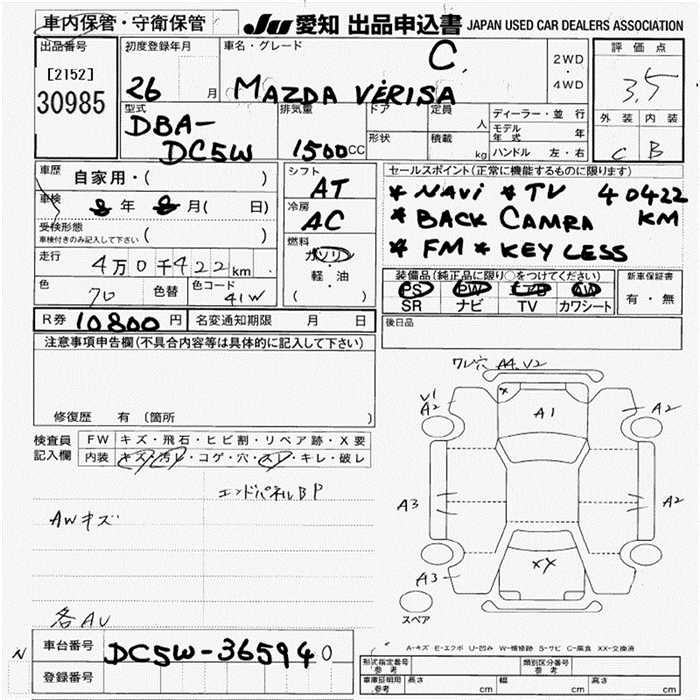 車内保管・守衛保管
JU 愛知 出品申込書 JAPAN USED CAR DEALERS ASSOCIATION
出品番号
[2152]
30985
初度登録年月
26 月
車名・グレード
C
MAZDA VERISA
2WD
・
4WD
評価点
3.5
外装 内装
C B
型式
DBA-
DC5W
排気量
1500CC
ドア
形状
定員 人
積載 kg
ディーラー・並行
モデル年式 年
ハンドル 左・右
車歴
自家用・( )
車検
年 月( 日)
受検形態
車検付きのみ記入して下さい ( )
走行
4万0千422km
色
色替
色コード
41W
シフト
AT
冷房
AC
燃料
ガソリン
軽・油
( )
セールスポイント(正常に機能するものに限ります)
* NAVi * TV 40422
* BACK CAMRA KM
* FM * KEY LESS
装備品(純正品に限り○をつけてください)
PS PW エアB AW
SR ナビ TV カワシート
新車保証書
有・無
R券 10800円
名変通知期限 月 日
後日品
注意事項申告欄(不具合内容等は具体的に記入して下さい)
修復歴 有 〔箇所 〕
検査員
記入欄
FW キズ・飛石・ヒビ割・リペア跡・X要
内装 キズ・汚レ・コゲ・穴・スレ・キレ・破レ
エンドパネルBP
AWキズ
各AU
ワレ穴 A4.V2
V1
A2
A1
A2
A3
A2
XX
A3
スペア
A-キズ E-エクボ U-凹み W-補修跡 S-サビ C-腐食 XX-交換済
N
車台番号
DC5W-365940
登録番号
形式指定番号
参考
類別区分番号
参考
車庫証明用
参考
長さ cm 幅 cm 高さ cm